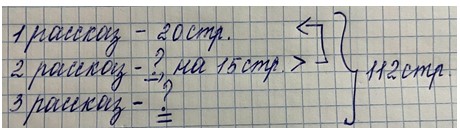 1 рассказ - 20 стр.
2 рассказ - ?, на 15 стр. >
3 рассказ - ?
112 стр.